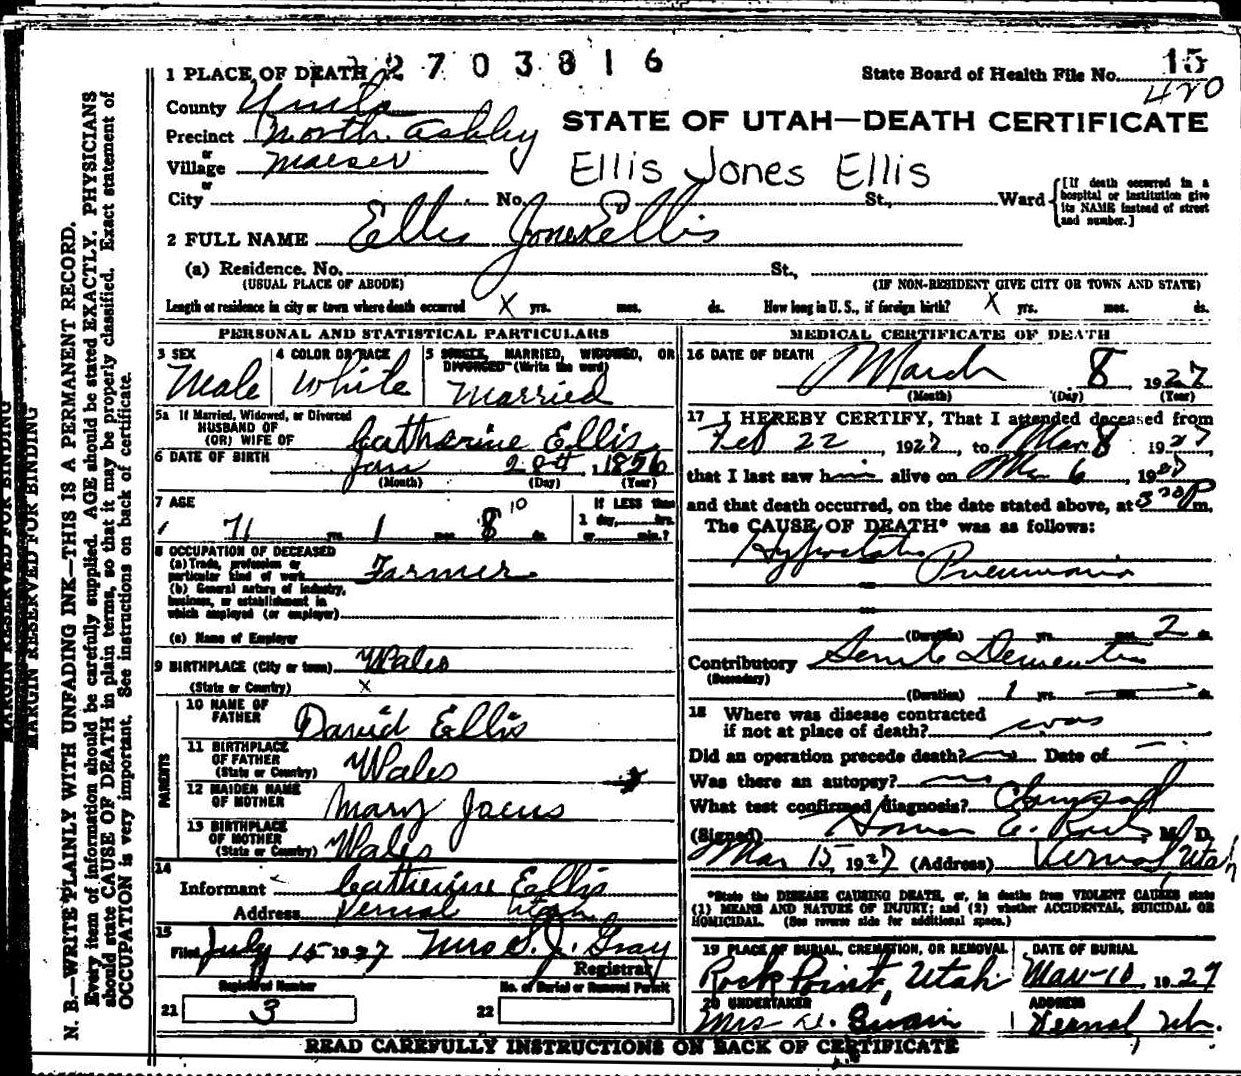 1 PLACE OF DEATH 2703816
State Board of Health File No. 15
420
County
Precinct North Ashley
or
Village Maeser
or
City No. St., Ward
STATE OF UTAH—DEATH CERTIFICATE
Ellis Jones Ellis
[If death occurred in a
hospital or institution give
its NAME instead of street
and number.]
2 FULL NAME Ellis Jones Ellis
(a) Residence. No. St.,
(USUAL PLACE OF ABODE) (IF NON-RESIDENT GIVE CITY OR TOWN AND STATE)
Length of residence in city or town where death occurred X yrs. mos. ds. How long in U. S., if foreign birth? X yrs. mos. ds.
PERSONAL AND STATISTICAL PARTICULARS
3 SEX
Male
4 COLOR OR RACE
White
5 SINGLE, MARRIED, WIDOWED, OR
DIVORCED (Write the word)
Married
5a If Married, Widowed, or Divorced
HUSBAND OF
(OR) WIFE OF Catherine Ellis
6 DATE OF BIRTH Jan 28th, 1856
(Month) (Day) (Year)
7 AGE
71 yrs. 1 mos. 8 10 ds.
IF LESS than
1 day, hrs.
or min.?
8 OCCUPATION OF DECEASED
(a) Trade, profession or
particular kind of work Farmer
(b) General nature of industry,
business, or establishment in
which employed (or employer)
(c) Name of Employer
9 BIRTHPLACE (City or town) Wales
(State or Country) X
PARENTS
10 NAME OF
FATHER David Ellis
11 BIRTHPLACE
OF FATHER
(State or Country) Wales
12 MAIDEN NAME
OF MOTHER Mary
13 BIRTHPLACE
OF MOTHER
(State or Country) Wales
14
Informant Catherine Ellis
Address Vernal Utah
15
Filed July 15 1927 Mrs S. J. Gray
Registrar
Registered Number
21 3
No. of Burial or Removal Permit
22
MEDICAL CERTIFICATE OF DEATH
16 DATE OF DEATH
March 8 1927
(Month) (Day) (Year)
17 I HEREBY CERTIFY, That I attended deceased from
Feb 22, 1927, to Mar 8 1927
that I last saw him alive on Mar 6, 1927
and that death occurred, on the date stated above, at 3 30 P m.
The CAUSE OF DEATH* was as follows:
Hypostatic
Pneumonia
(Duration) yrs. mos. 2 ds.
Contributory Senile Dementia
(Secondary)
(Duration) 1 yrs. ds.
18 Where was disease contracted
if not at place of death?
Did an operation precede death? Date of
Was there an autopsy?
What test confirmed diagnosis?
(Signed) Homer E. M. D.
Mar 15, 1927 (Address) Vernal, Utah
*State the DISEASE CAUSING DEATH, or, in deaths from VIOLENT CAUSES, state
(1) MEANS AND NATURE OF INJURY; and (2) whether ACCIDENTAL, SUICIDAL OR
HOMICIDAL. (See reverse side for additional space.)
19 PLACE OF BURIAL, CREMATION, OR REMOVAL
Rock Point, Utah
DATE OF BURIAL
Mar 10 1927
20 UNDERTAKER
Mrs Swain
ADDRESS
Vernal, Ut.
READ CAREFULLY INSTRUCTIONS ON BACK OF CERTIFICATE
MARGIN RESERVED FOR BINDING
MARGIN RESERVED FOR BINDING
N. B.—WRITE PLAINLY WITH UNFADING INK—THIS IS A PERMANENT RECORD.
Every item of information should be carefully supplied. AGE should be stated EXACTLY. PHYSICIANS
should state CAUSE OF DEATH in plain terms, so that it may be properly classified. Exact statement of
OCCUPATION is very important. See instructions on back of certificate.